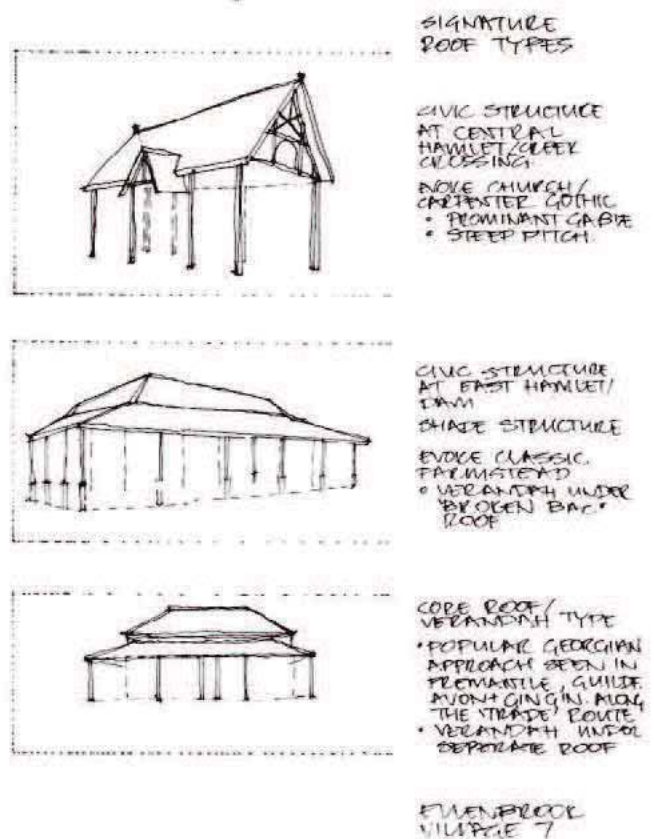 SIGNATURE
ROOF TYPES
CIVIC STRUCTURE
AT CENTRAL
HAMLET/CREEK
CROSSING
EVOKE CHURCH/
CARPENTER GOTHIC
• PROMINANT GABLE
• STEEP PITCH.
CIVIC STRUCTURE
AT EAST HAMLET/
DAM
SHADE STRUCTURE
EVOKE CLASSIC
FARMSTEAD
• VERANDAH UNDER
'BROKEN BAC'
ROOF
CORE ROOF/
VERANDAH TYPE
• POPULAR GEORGIAN
APPROACH SEEN IN
FREMANTLE, GUILDF.
AVON + GINGIN. ALONG
THE 'TRADE' ROUTE
• VERANDAH UNDER
SEPERATE ROOF
ELLENBROOK
VILLAGE 7